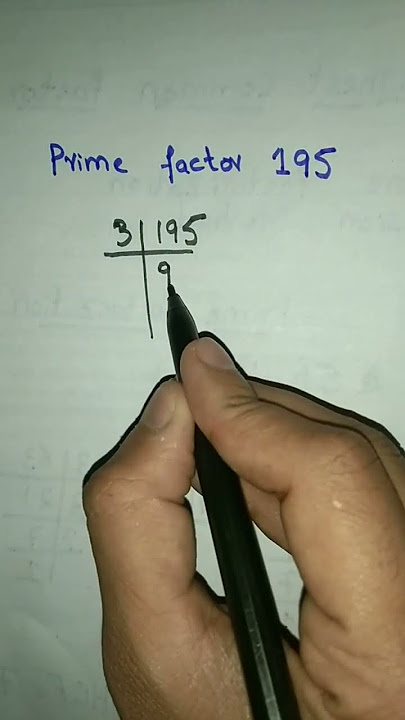 Prime factor 195
3 195
9